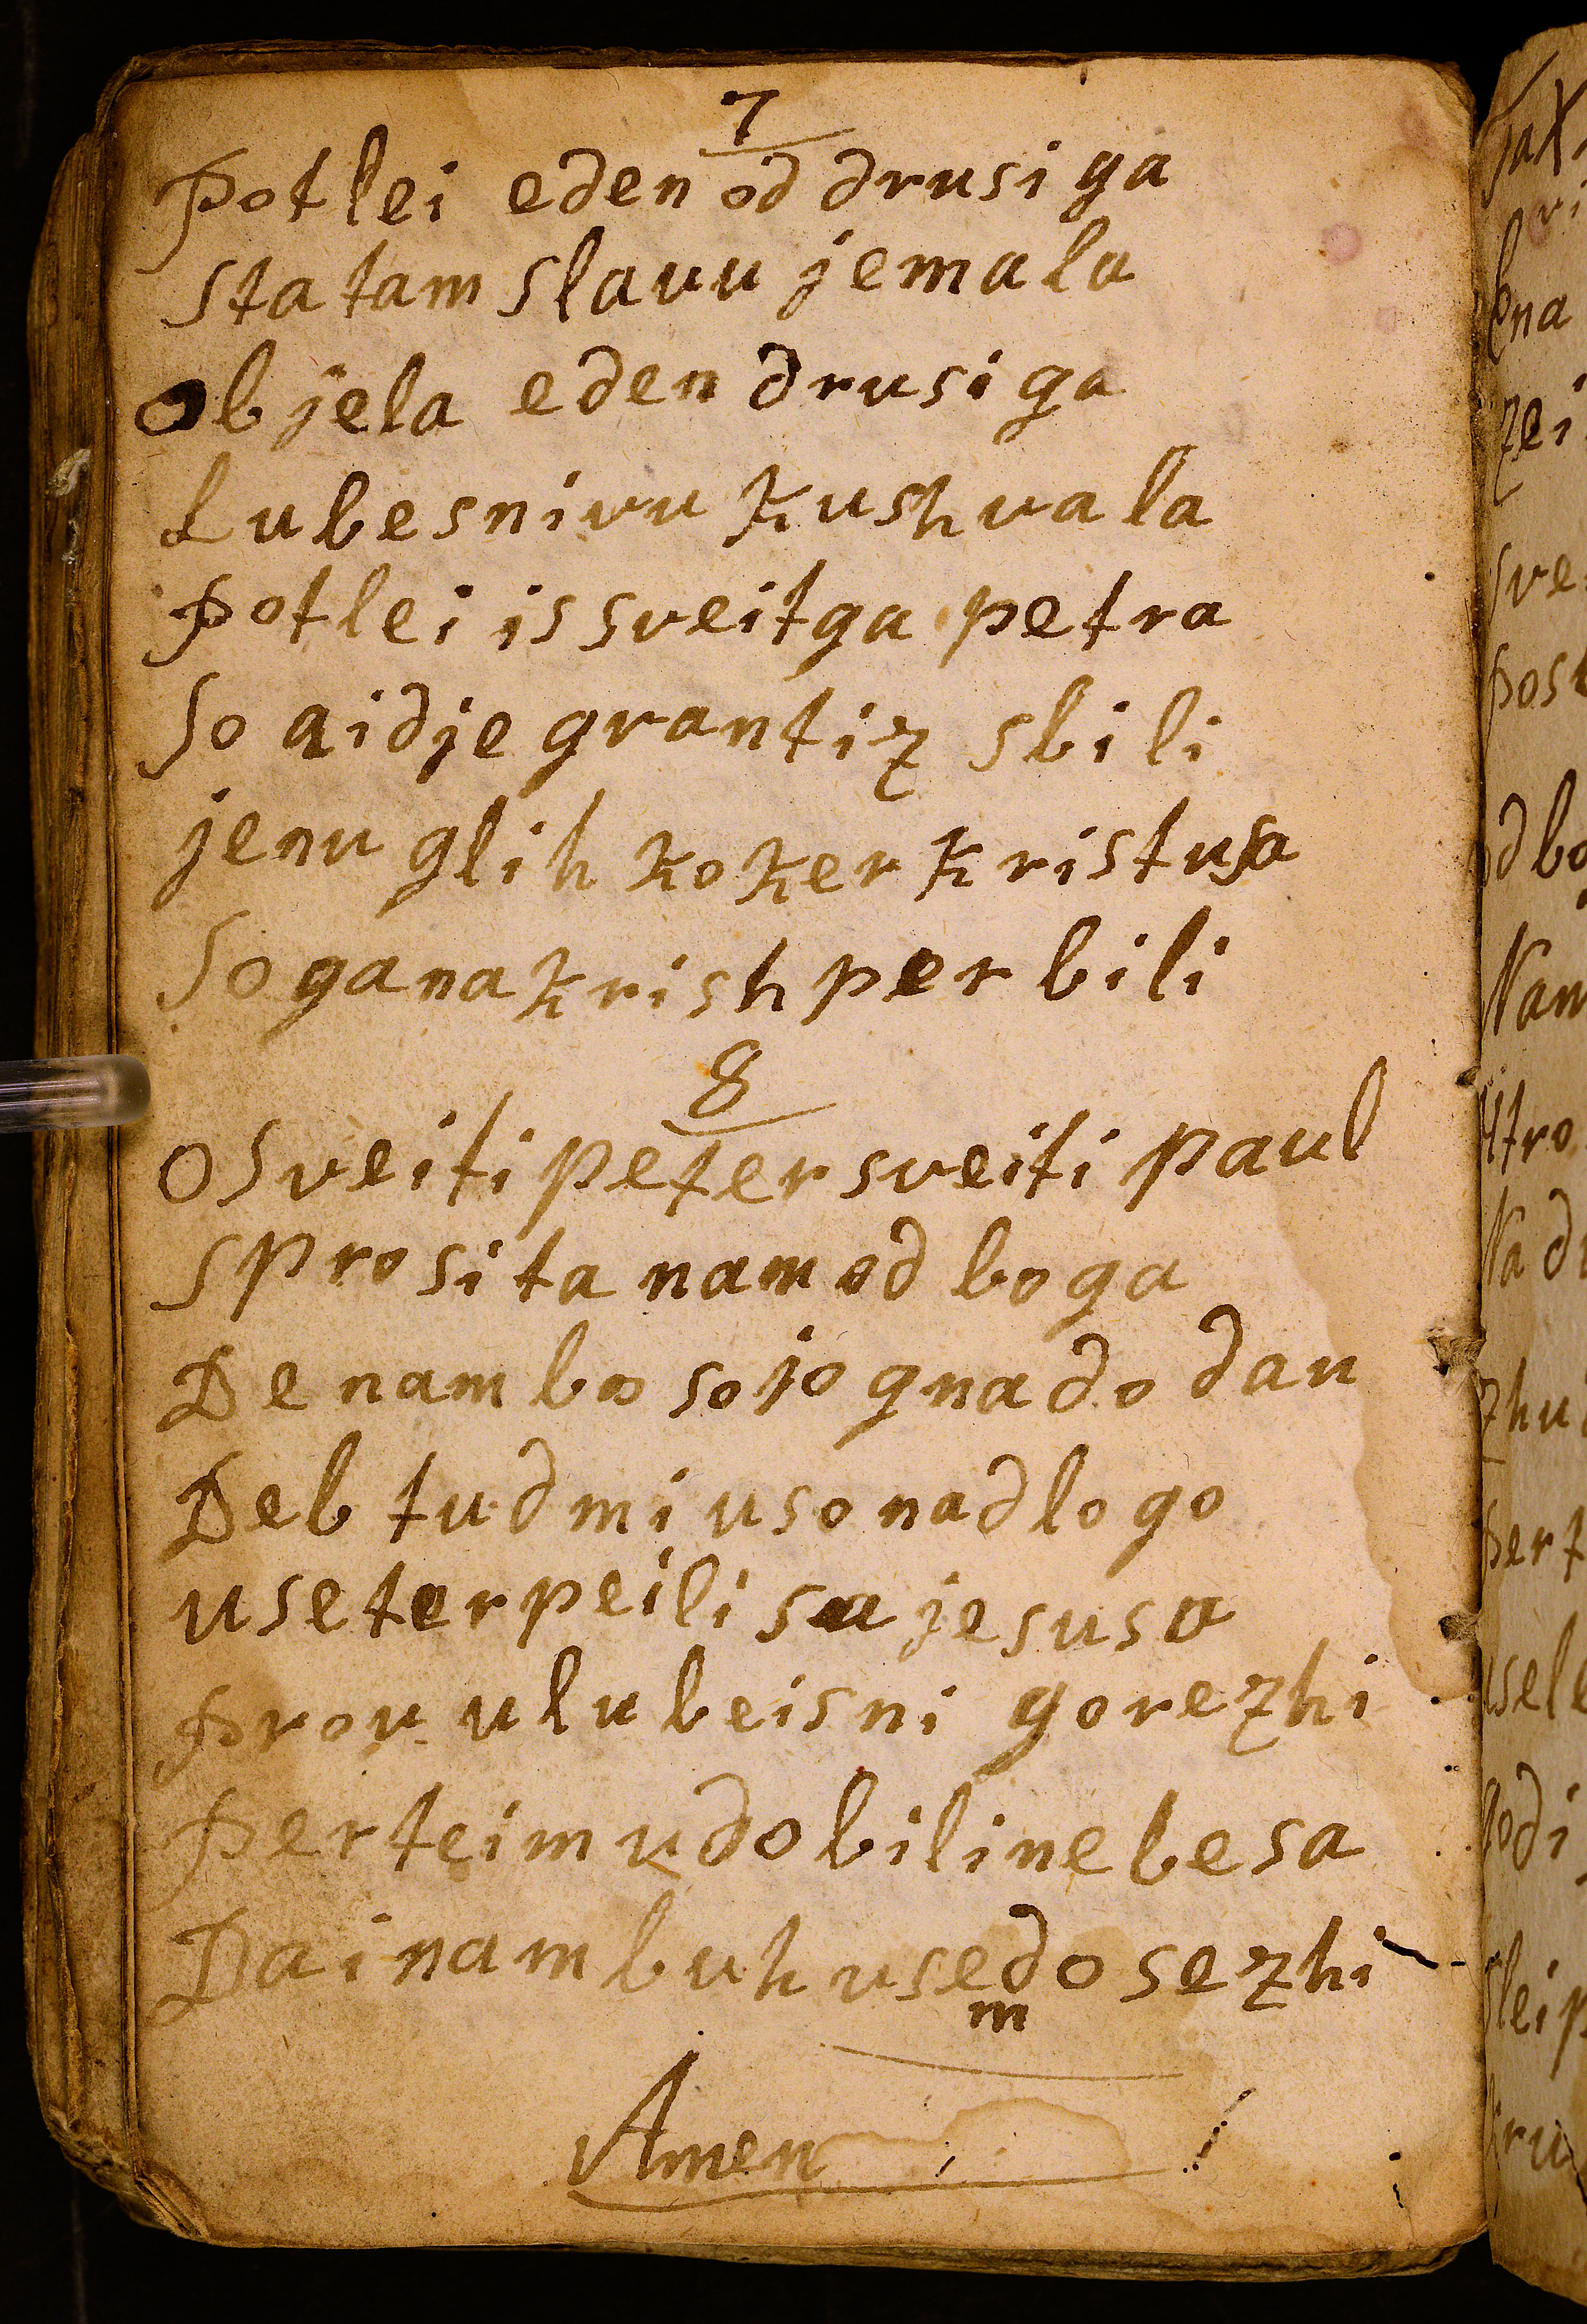 7
Potlei eden od drusiga
Sta tam slavu jemala
Objela eden drusiga
Lubesnivu kushvala
Potlei is sveitga petra
So aidje grantiz sbili
jenu glih koker kristusa
So ga na krish perbili
8
O Sveiti peter sveiti paul
Sprosita nam od boga
De nam bo sojo gnado dau
Deb tud mi uso nadlogo
use terpeili sa jesusa
Prou u lubeisni gorezhi
Perteimu dobili nebesa
Dai nam buh usem dosezhi
Amen